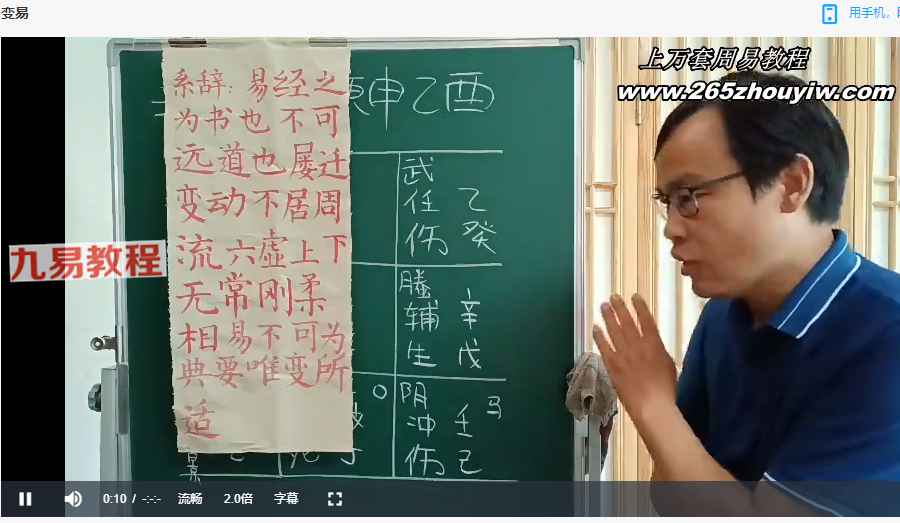 变易
用手机
上万套周易教程
www.265zhouyiw.com
九易教程
系辞：易经之
为书也不可
远道也屡迁
变动不居周
流六虚上下
无常刚柔
相易不可为
典要唯变所
适
申乙酉
武
任 乙
伤 癸
螣 辛
辅
生 戊
阴 马
冲 壬
伤 己
0:10 / -:-:-
流畅
2.0倍
字幕